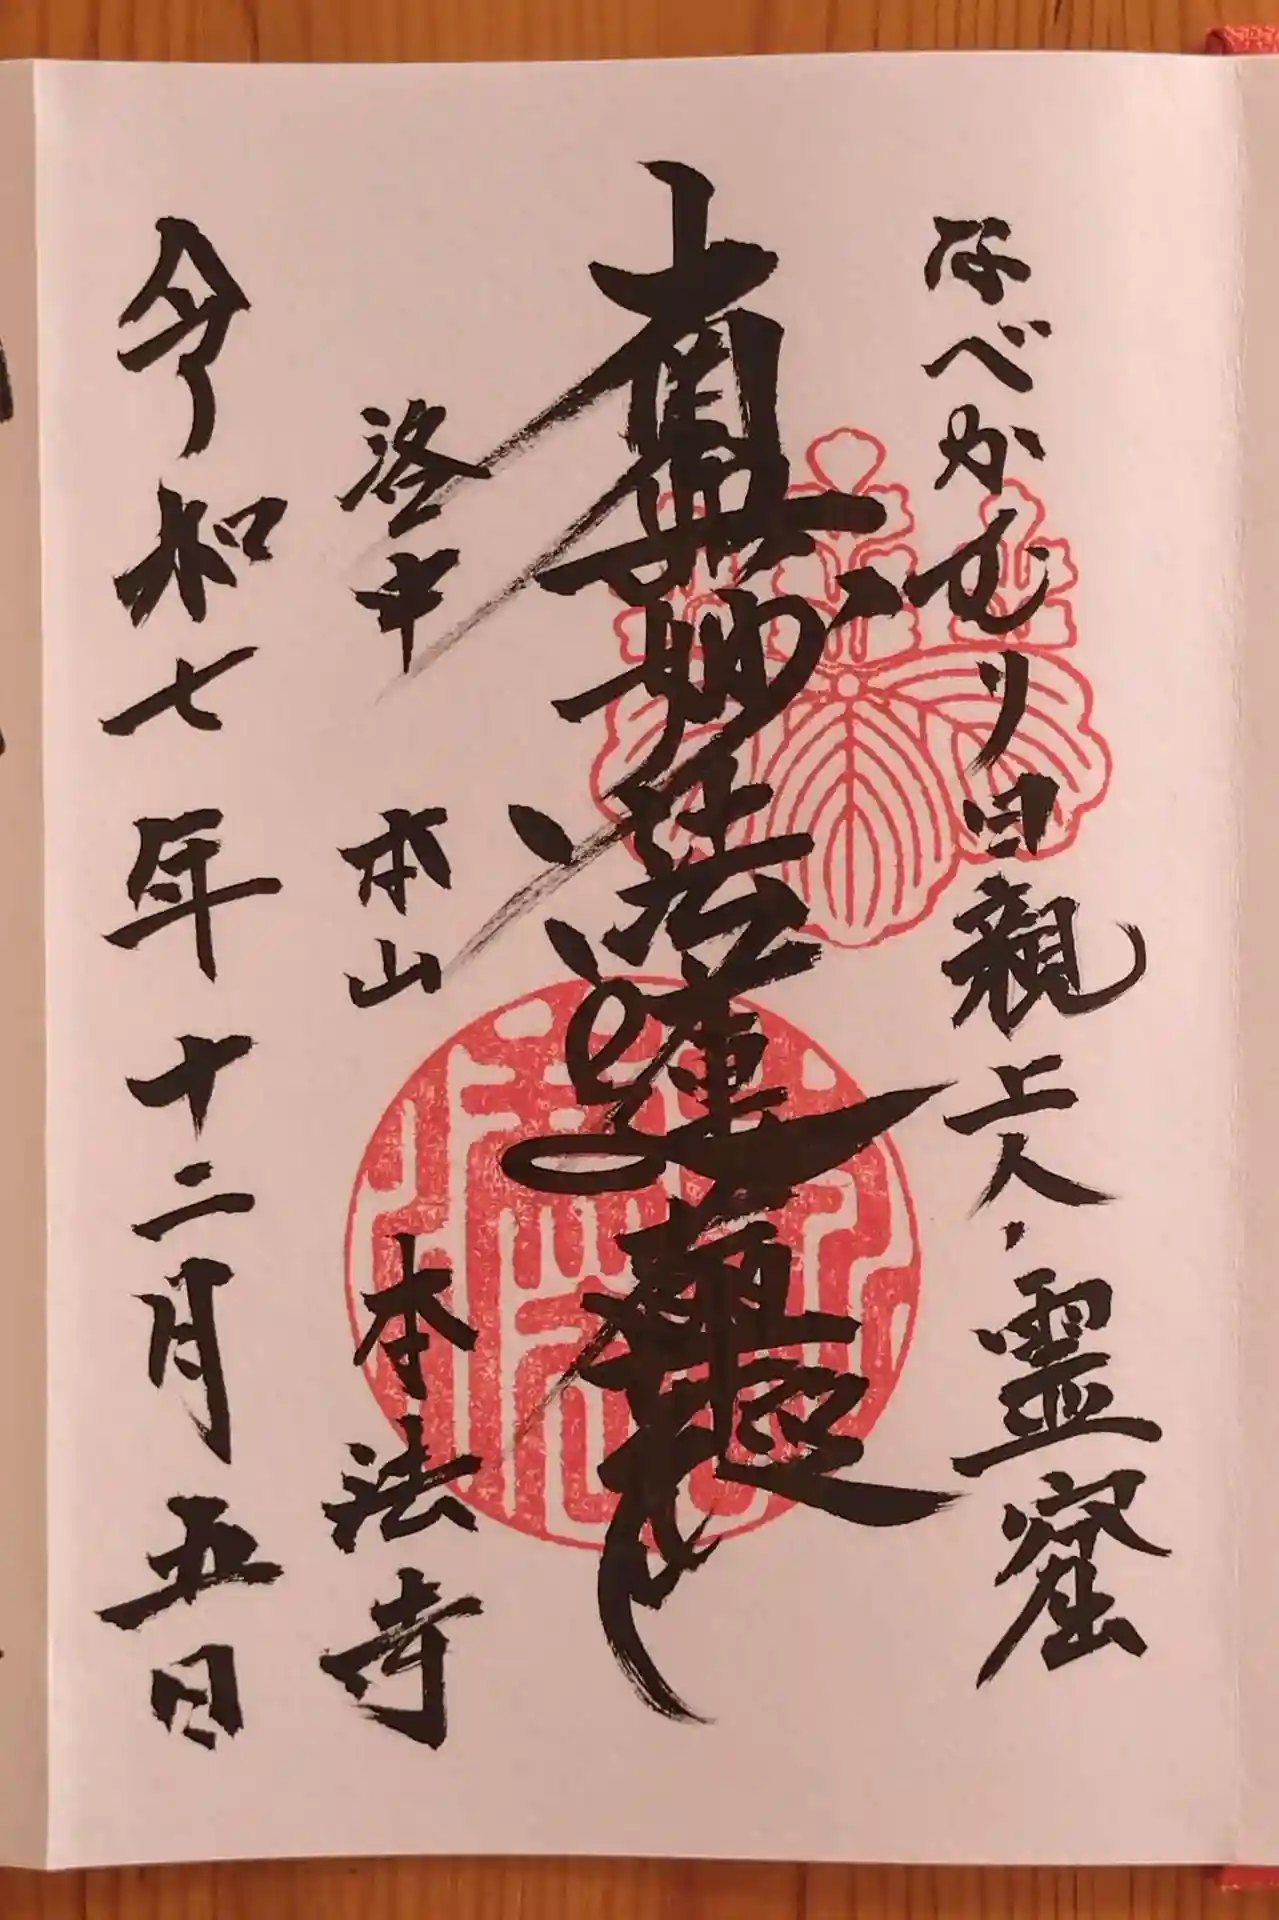 なべかむり日親上人・霊窟
南無妙法蓮華経
洛中 本山 本法寺
令和七年十二月五日